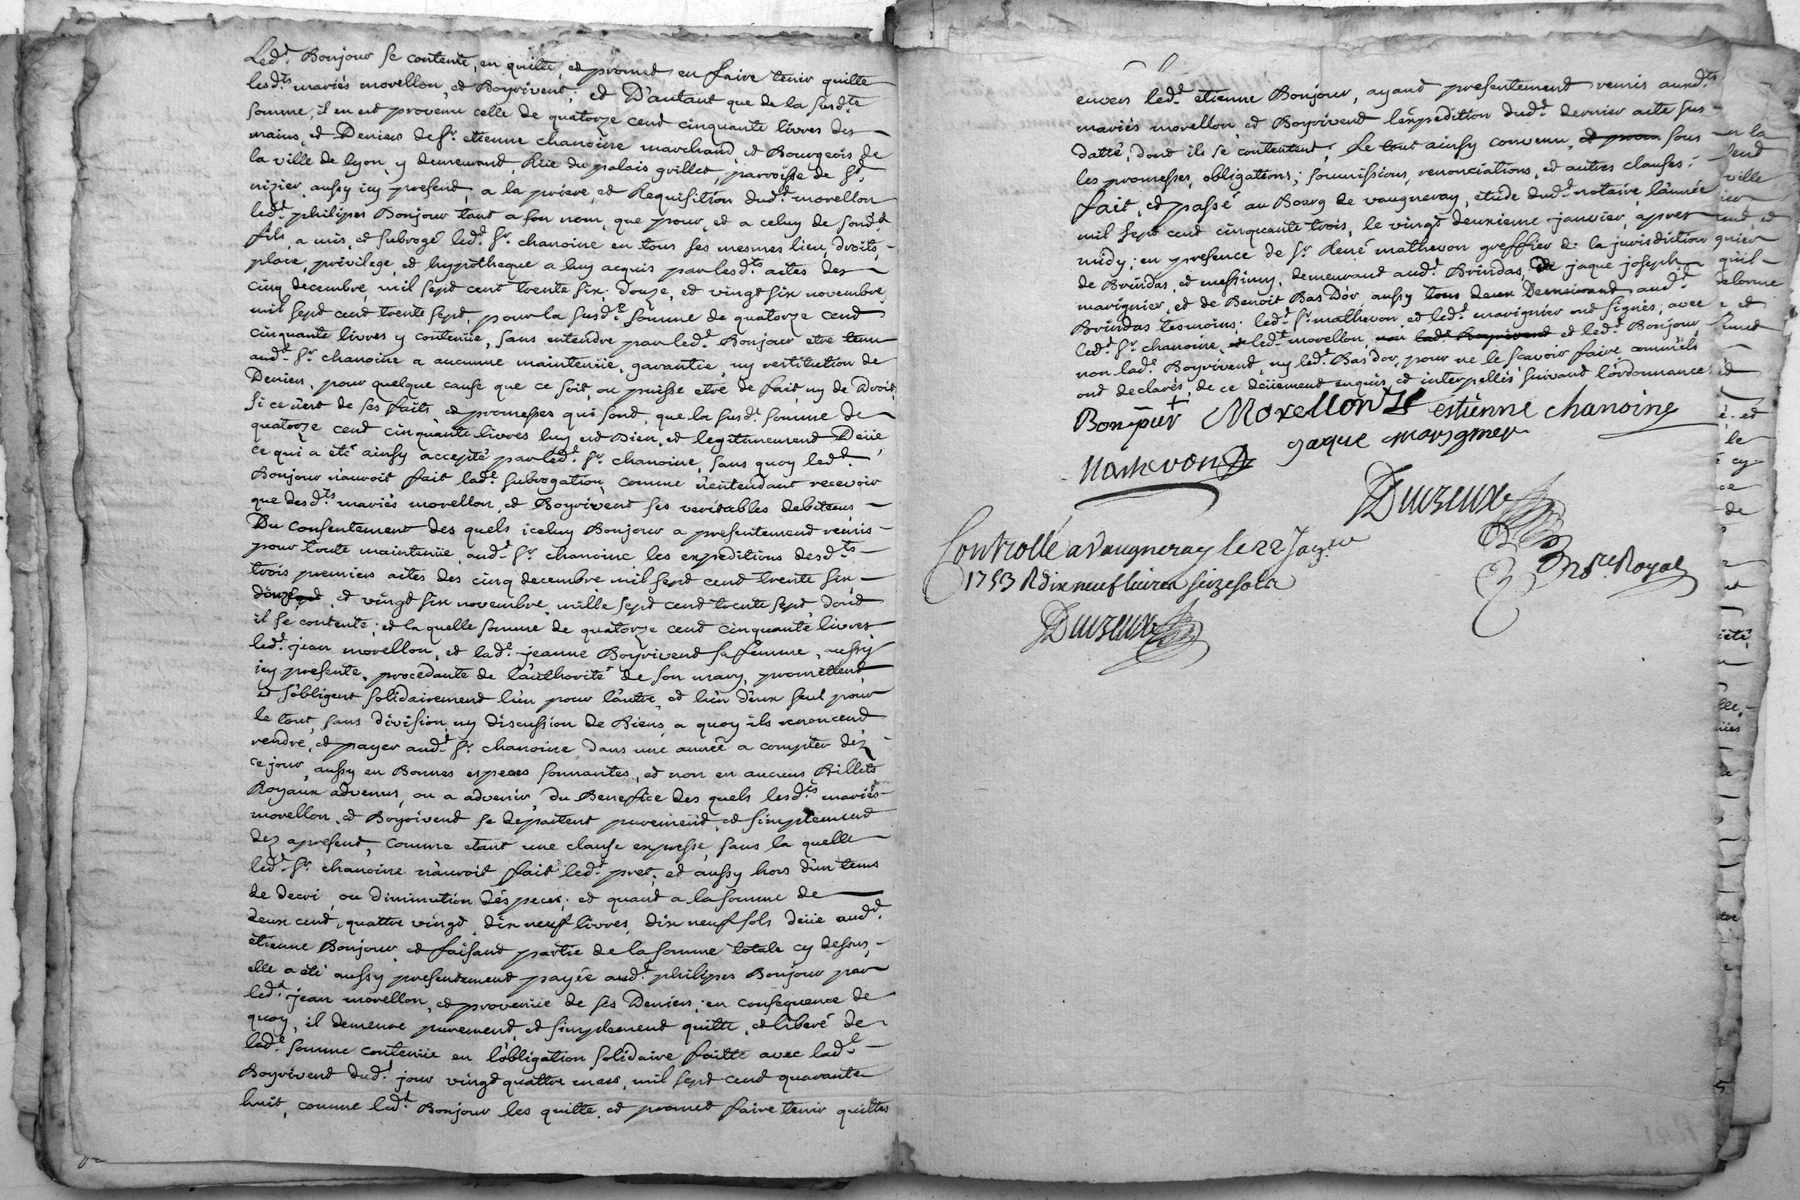 Led.t Bonjour se contente, en quitte, et promet en faire tenir quitte
lesd.ts mariés morellon, et Boyrivent; et D'autant que de la susd.te
somme, il en est provenu celle de quatorze cent cinquante livres des
mains, et Deniers de S.r etienne chanoine marchand, et Bourgeois de
la ville de lyon, y demeurant, Rüe du palais grillet, parroisse de S.t
nizier, aussy icy present, a la priere, et Requisition dud.t morellon
led.t philipes Bonjour tant a son nom, que pour, et a celuy de sond.t
fils, a mis, et subrogé led.t S.r chanoine en tous ses mesmes lieu, droits,
place, privilege, et hypotheque a luy acquis par lesd.ts actes des
cinq decembre, mil sept cent trente six, douze, et vingt six novembre
mil sept cent trente sept, pour la susd.e somme de quatorze cent
cinquante livres y contenüe, sans entendre par led.t Bonjour etre tenu
aud.t S.r chanoine a aucunne maintenüe, garantie, ny restitution de
Deniers, pour quelque cause que ce soit, ou puisse etre de fait, ny de Droit,
si ce n'est de ses faits, et promesses qui sont, que la susd.e somme de
quatorze cent cinquante livres luy est Bien, et legitimement Deüe,
ce qui a été ainsy accepté par led.t S.r chanoine, sans quoy led.t
Bonjour n'auroit fait lad.e subrogation, comme n'entendant recevoir
que desd.ts mariés morellon, et Boyrivent ses veritables debiteurs
Du consentement des quels iceluy Bonjour a presentement remis
pour toute maintenüe, aud.t S.r chanoine les expeditions desd.ts
trois premiers actes des cinq decembre mil sept cent trente six
et vingt six novembre, mille sept cent trente sept, dont
il se contente; et la quelle somme de quatorze cent cinquante livres
led.t jean morellon, et lad.e jeanne Boyrivent sa femme, aussy
icy presente, procedante de l'authorité de son mary, promettent,
et s'obligent solidairement l'un pour l'autre, et l'un d'eux seul pour
le tout, sans division, ny discussion de Biens, a quoy ils renoncent
rendre, et payer aud.t S.r chanoine dans une année a compter dez
ce jour, aussy en Bonnes especes sonnantes, et non en aucuns Billets
Royaux advenus, ou a advenir, du Benefice des quels lesd.ts mariés
morellon, et Boyrivent se departent purement, et simplement
dez apresent, comme etant une clause expresse, sans la quelle
led.t S.r chanoine n'auroit fait led.t pret, et aussy hors d'un tems
de decri, ou diminution d'especes; et quand a la somme de
deux cent, quattre vingt, dix neuf livres, dix neuf sols deüe aud.t
etienne Bonjour, et faisant partie de la somme totale cy dessus,
elle a été aussy presentement payée aud.t philipes Bonjour par
led.t jean morellon, et provenüe de ses Deniers; en consequence de
quoy, il demeure purement, et simplement quitte, et libéré de
lad.e somme contenüe en l'obligation solidaire faitte avec lad.e
Boyrivent dud.t jour vingt quattre mars, mil sept cent quarante
huit, comme led.t Bonjour les quitte, et promet faire tenir quittes
envers led.t etienne Bonjour, ayant presentement remis auxd.ts
mariés morellon, et Boyrivent l'expedition dud.t dernier acte sus
datté, dont ils se contentent, Le tout ainsy convenu, et prom sous
les promesses, obligations, soumissions, renonciations, et autres clauses:
fait, et passé au Bourg de vaugneray, etude dud.t notaire, l'année
mil sept cent cinquante trois, le vingt deuxieme janvier, apres
midy; en presence de S.r René mathevon greffier de la jurisdiction
de Brindas, et messimy, demeurant aud.t Brindas, de jaque joseph
marignier, et de Benoit Bas D'or, aussy tous deux Demeurant aud.t
Brindas tesmoins; led.t S.r mathevon, et led.t marignier ont signés, avec
led.t S.r chanoine, et led.t morellon, non lad.e Boyrivent et led.t Bonjour,
non lad.e Boyrivent, ny led.t Bas d'or, pour ne le scavoir faire comm'ils
ont declarés, de ce deüement enquis, et interpellés suivant l'ordonnance
Morellon estienne chanoine
jaque marignier
Mathevon
Duvzeux
Controllé a Vaugneray le 22 Jan.er
1753 R dix neuf livres seize sols
N.re Royal
Duvzeux